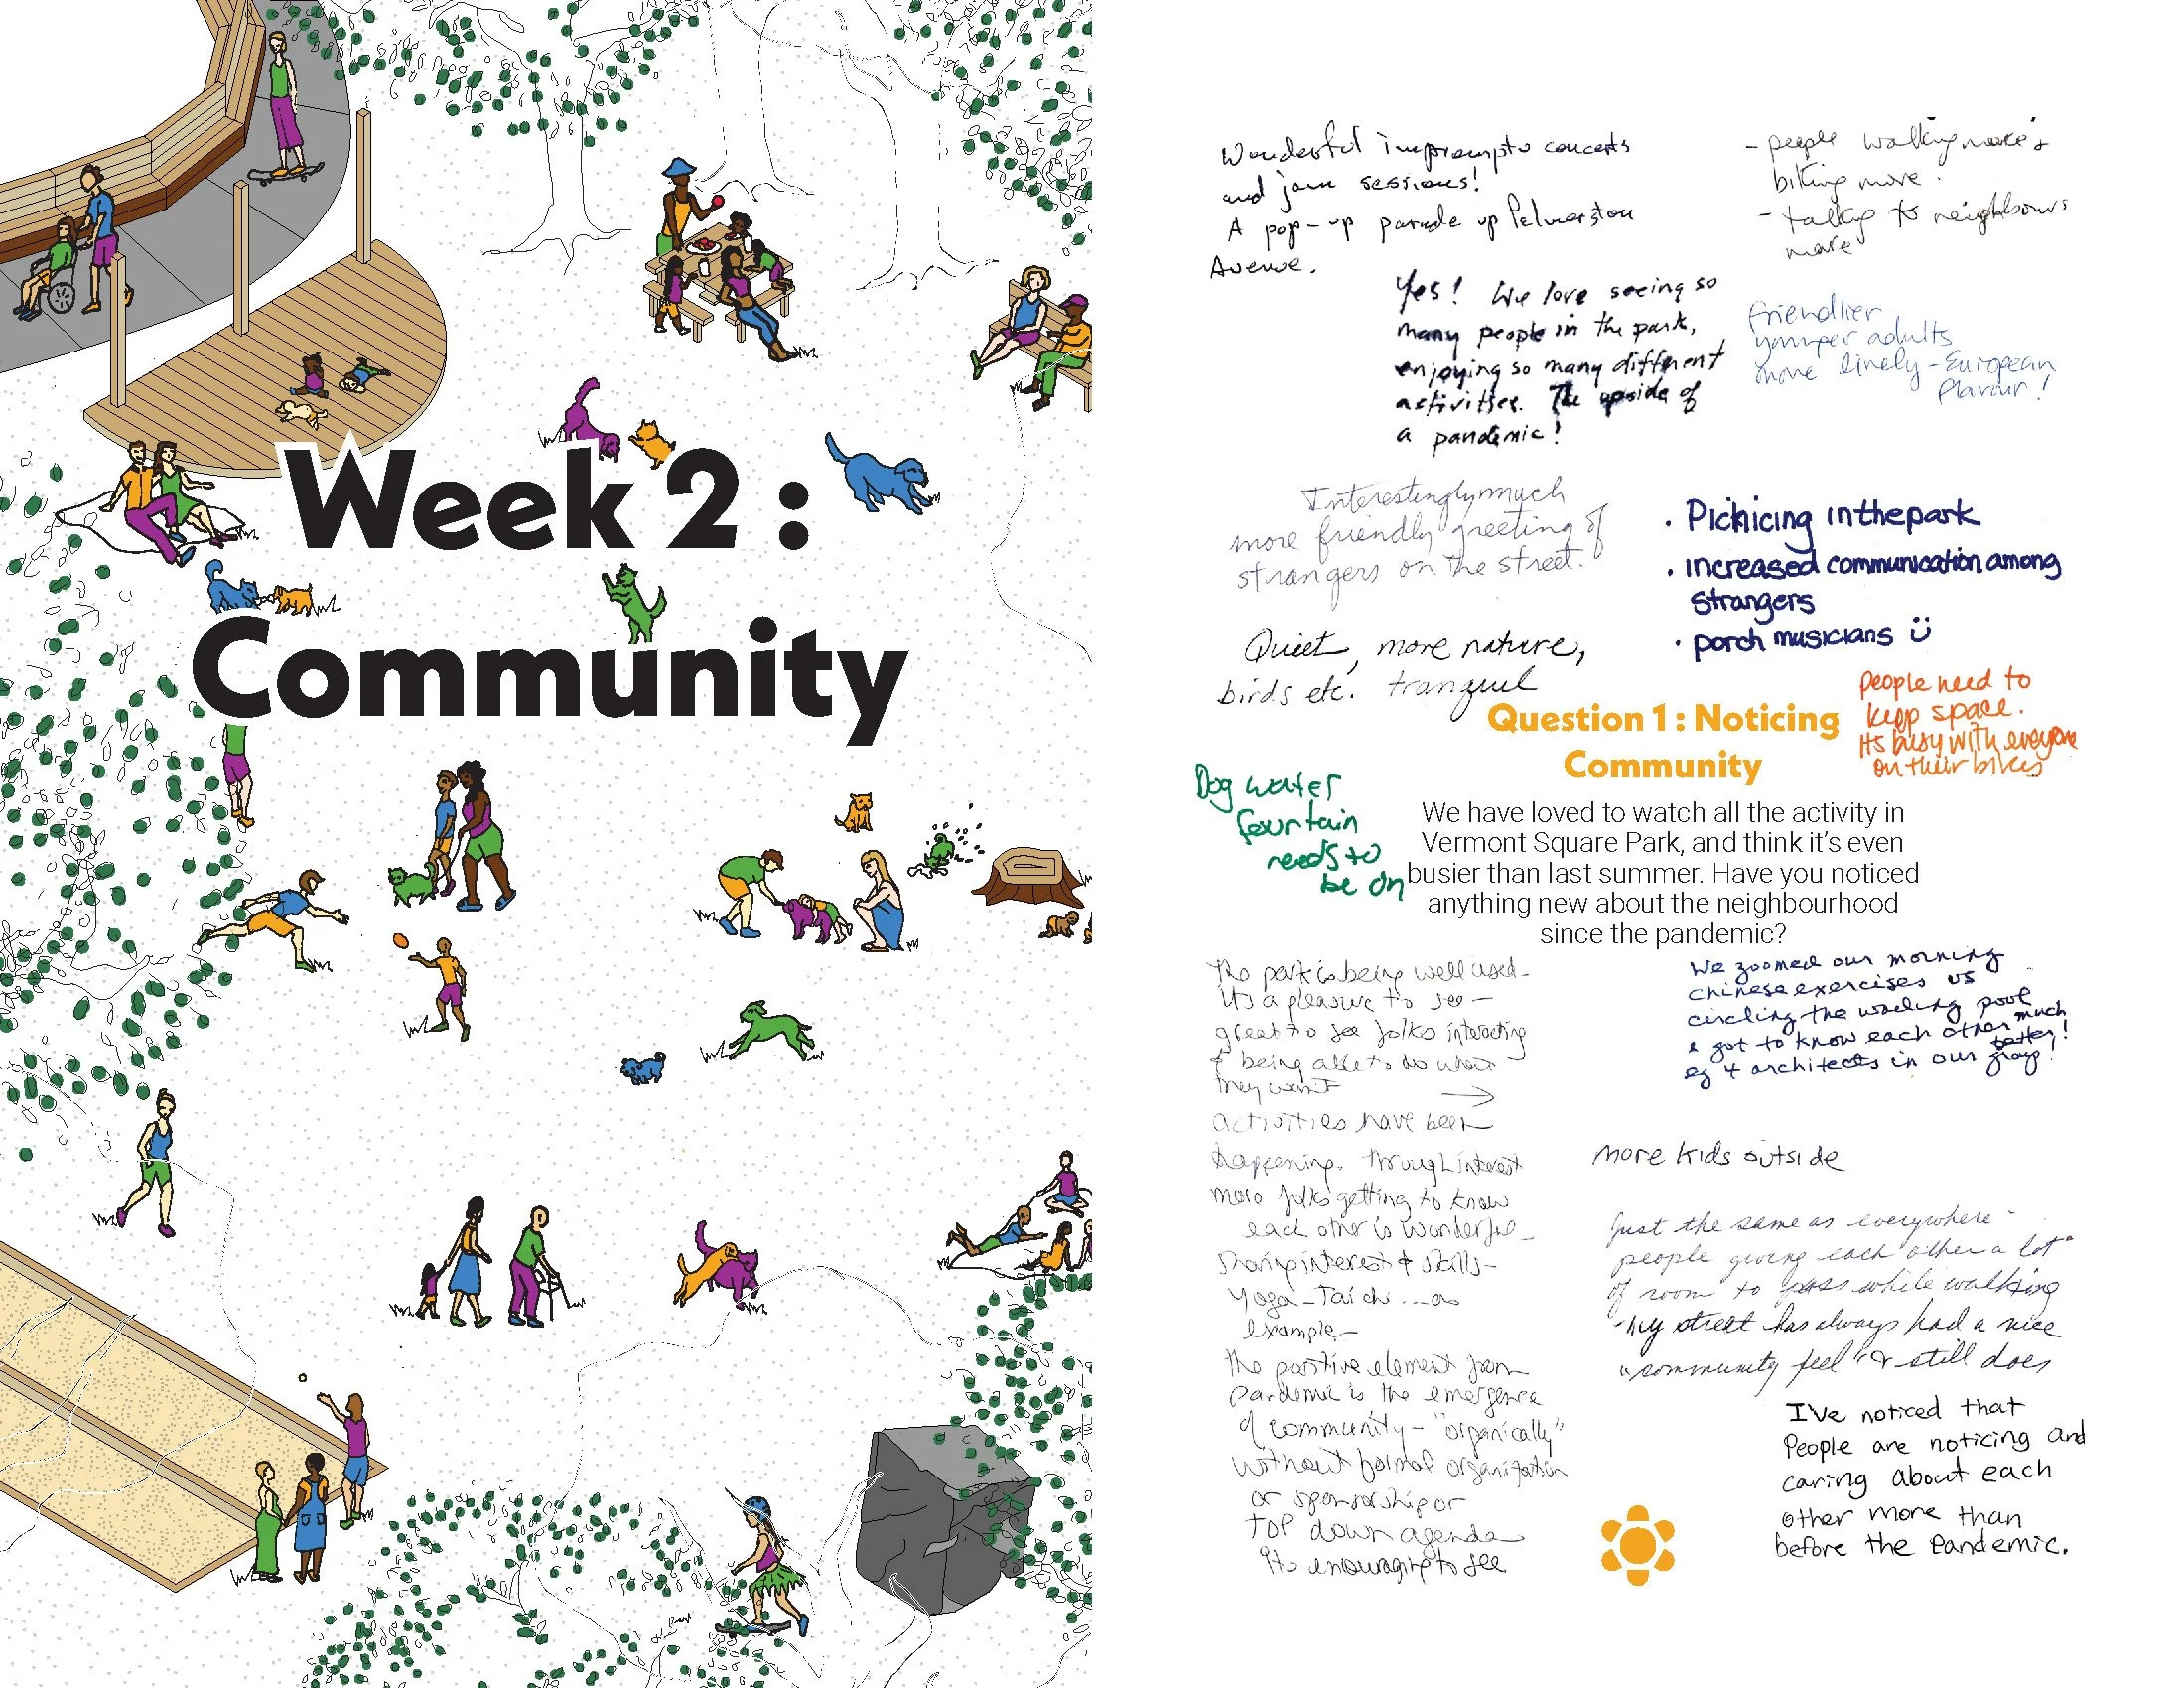 Week 2 :
Community
Wonderful impromptu concerts
and jam sessions!
A pop-up parade up Palmerston
Avenue.
- people walking more &
biking more.
- talking to neighbours
more
Yes! We love seeing so
many people in the park,
enjoying so many different
activities. The upside of
a pandemic!
friendlier
younger adults
more lively - European
flavour!
Interestingly much
more friendly greeting of
strangers on the street.
• Picnicing in the park
• increased communication among
strangers
• porch musicians
Quiet, more nature,
birds etc. tranquil
people need to
keep space.
Its busy with everyone
on their bikes
Question 1 : Noticing
Community
Dog water
fountain
needs to
be on
We have loved to watch all the activity in
Vermont Square Park, and think it's even
busier than last summer. Have you noticed
anything new about the neighbourhood
since the pandemic?
The park is being well used -
its a pleasure to see -
great to see folks interacting
& being able to do what
they want →
activities have been
happening. through interest
more folks getting to know
each other is wonderful -
sharing interest & skills -
Yoga - Tai chi ... as
example -
The positive element from
Pandemic is the emergence
of community - "organically"
without formal organization
or sponsorship or
top down agenda
Its encouraging to see
We zoomed our morning
chinese exercises vs
circling the wading pool
& got to know each other much
better!
eg 4 architects in our group!
more kids outside
Just the same as everywhere -
people giving each other a lot
of room to pass while walking
- My street has always had a nice
"community feel" & still does
I've noticed that
People are noticing and
caring about each
other more than
before the Pandemic.